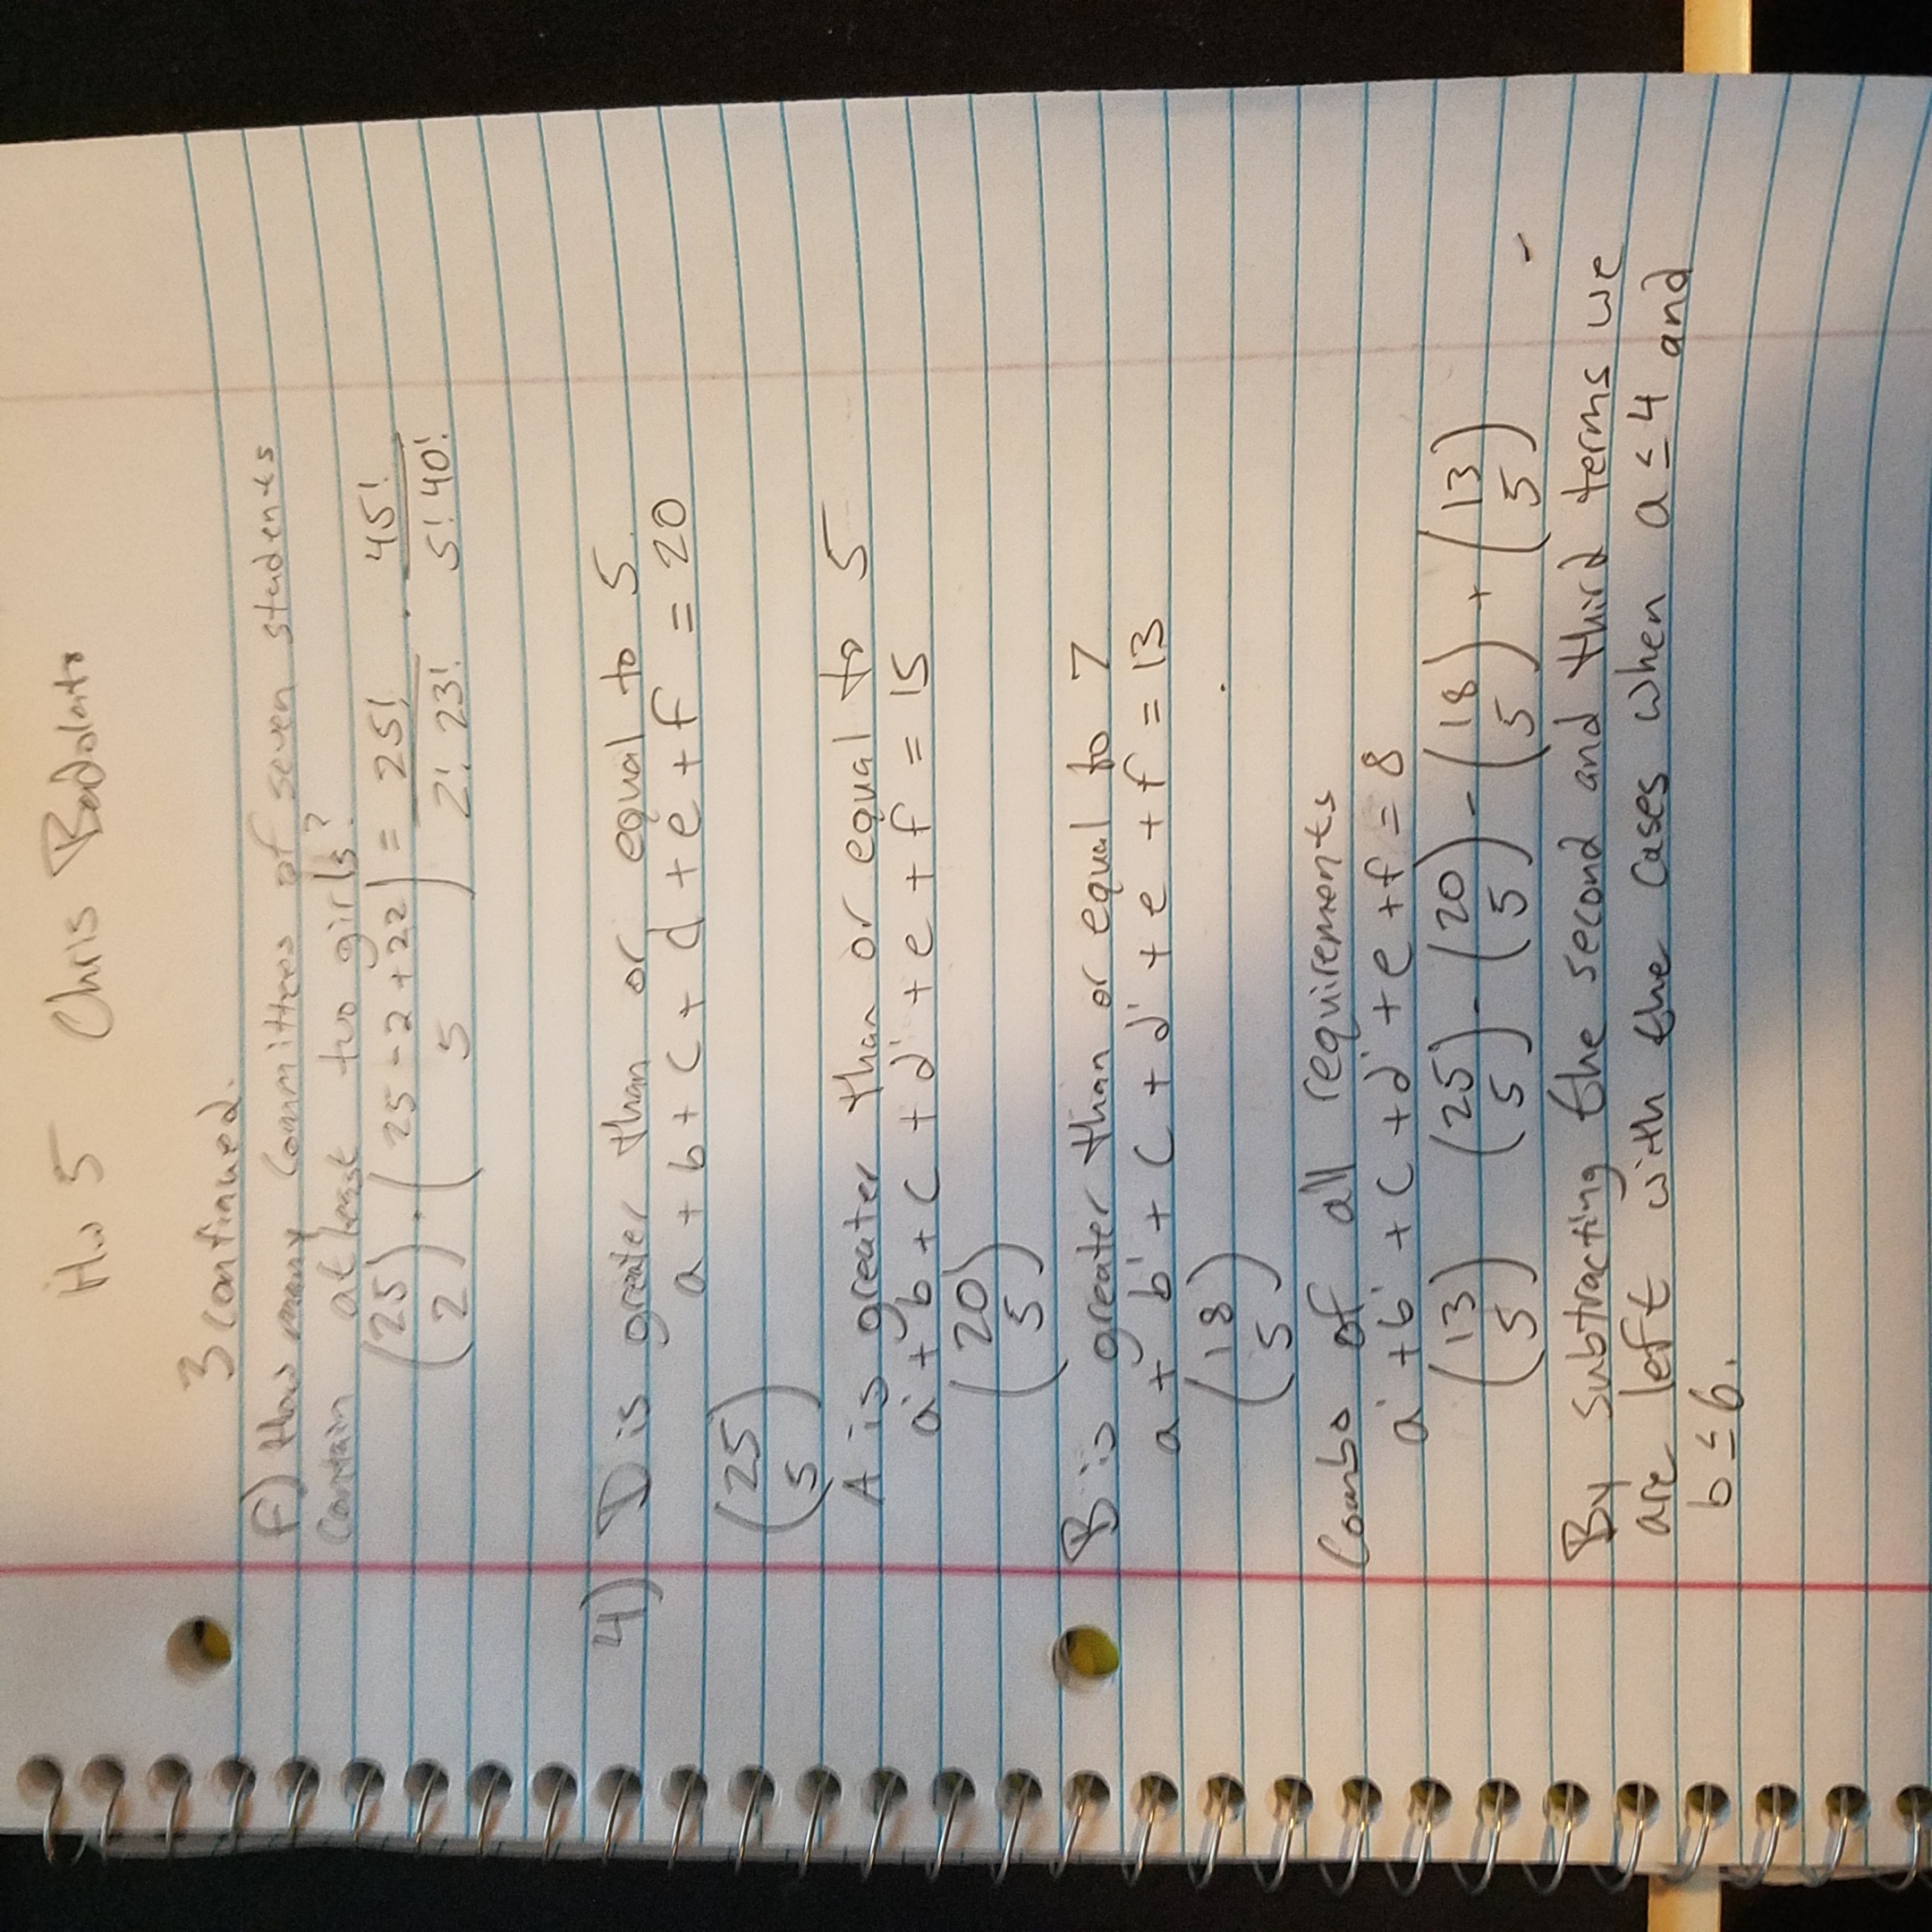 Hw 5 Chris Badolato
3 continued.
F) How many Committees of seven students
Contain at least two girls?
(25 2) · (25-2+22 5) = 25!/2! 23! · 45!/5! 40!
4) D is greater than or equal to 5.
a + b + c + d + e + f = 20
(25 5)
A is greater than or equal to 5
a' + b + c + d' + e + f = 15
(20 5)
B is greater than or equal to 7
a + b' + c + d' + e + f = 13
(18 5)
Combo of all requirements
a' + b' + c + d' + e + f = 8
(13 5) (25 5) - (20 5) - (18 5) + (13 5)
By subtracting the second and third terms we
are left with the cases when a ≤ 4 and
b ≤ 6.